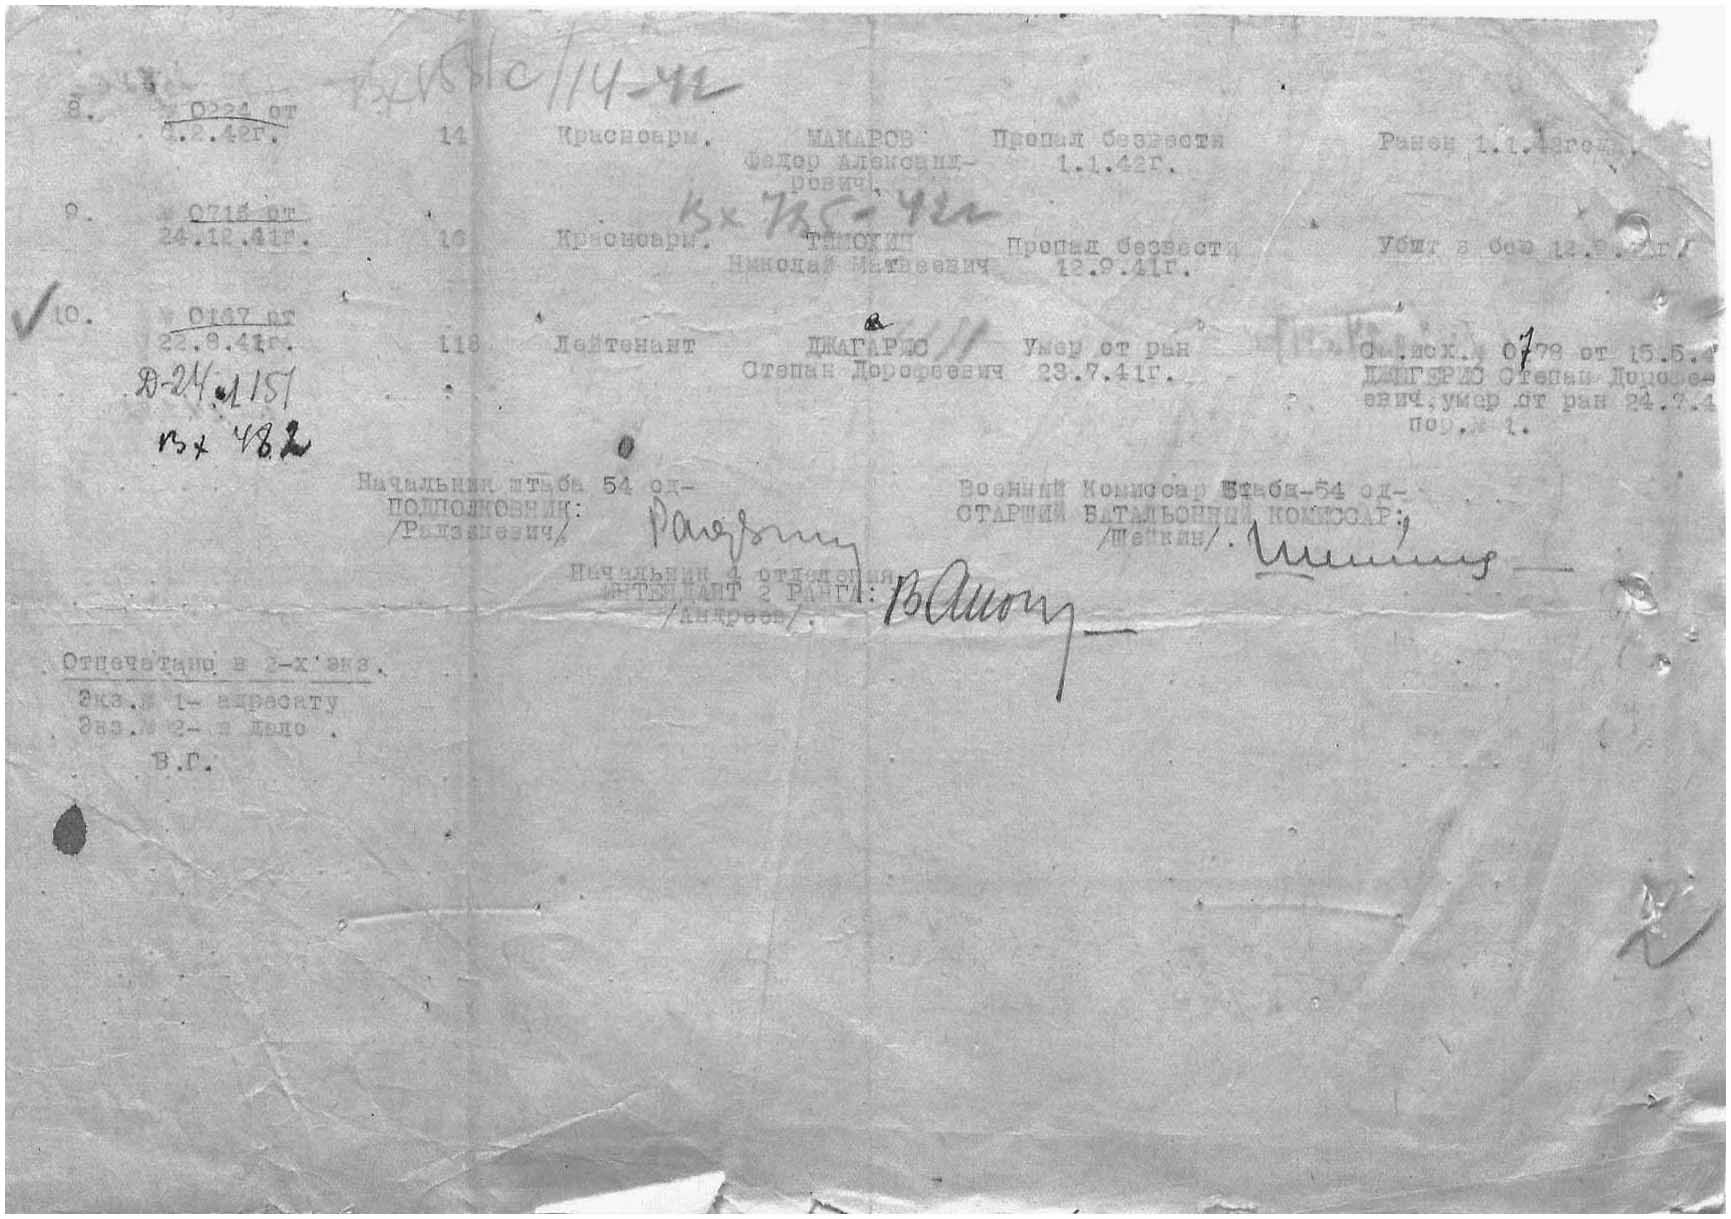 14-42
8. № 0224 от
4.2.42г. 14 Красноарм. МАКАРОВ Пропал безвести Ранен 1.1.42года.
Федор Александ- 1.1.42г.
рович.
Вх 785-42г
9. № 0715 от
24.12.41г. 16 Красноарм. ТИМОХИН Пропал безвести Убит в бою 12.9. г.
Николай Матвеевич 12.9.41г.
10. № 0167 от
22.8.41г. 118 Лейтенант ДЖАГАРИС Умер от ран См.исх.№ 0778 от 15.5.4
Степан Дорофеевич 23.7.41г. ДЖЕГЕРИС Степан Дорофе-
Д-24 1151 евич.умер от ран 24.7.4
Вх 482 пор.№ 1.
Начальник штаба 54 сд- Военный Комиссар Штаба-54 сд-
ПОДПОЛКОВНИК: СТАРШИЙ БАТАЛЬОННЫЙ КОМИССАР:
/Радзиевич/. /Шейкин/.
Начальник 4 отделения
ИНТЕНДАНТ 2 РАНГА:
/Андреев/.
Отпечатано в 2-х экз.
Экз.№ 1- адресату
Экз.№ 2- в дело .
В.Г.